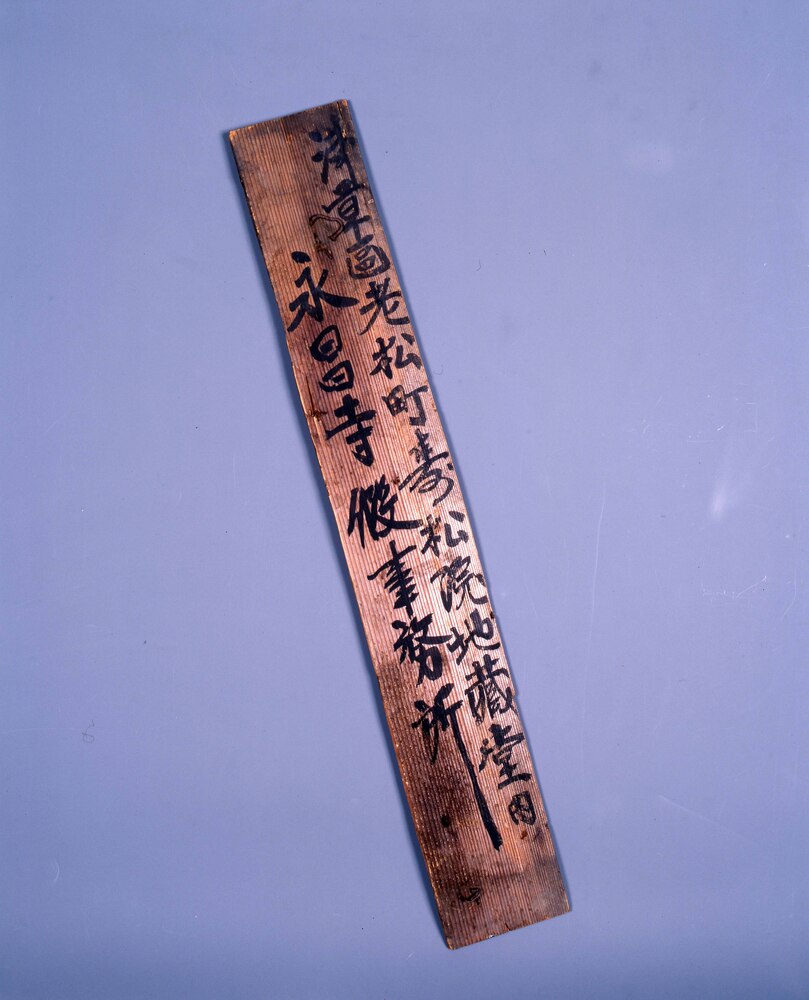 浅草區老松町壽松院地藏堂内
永昌寺假事務所